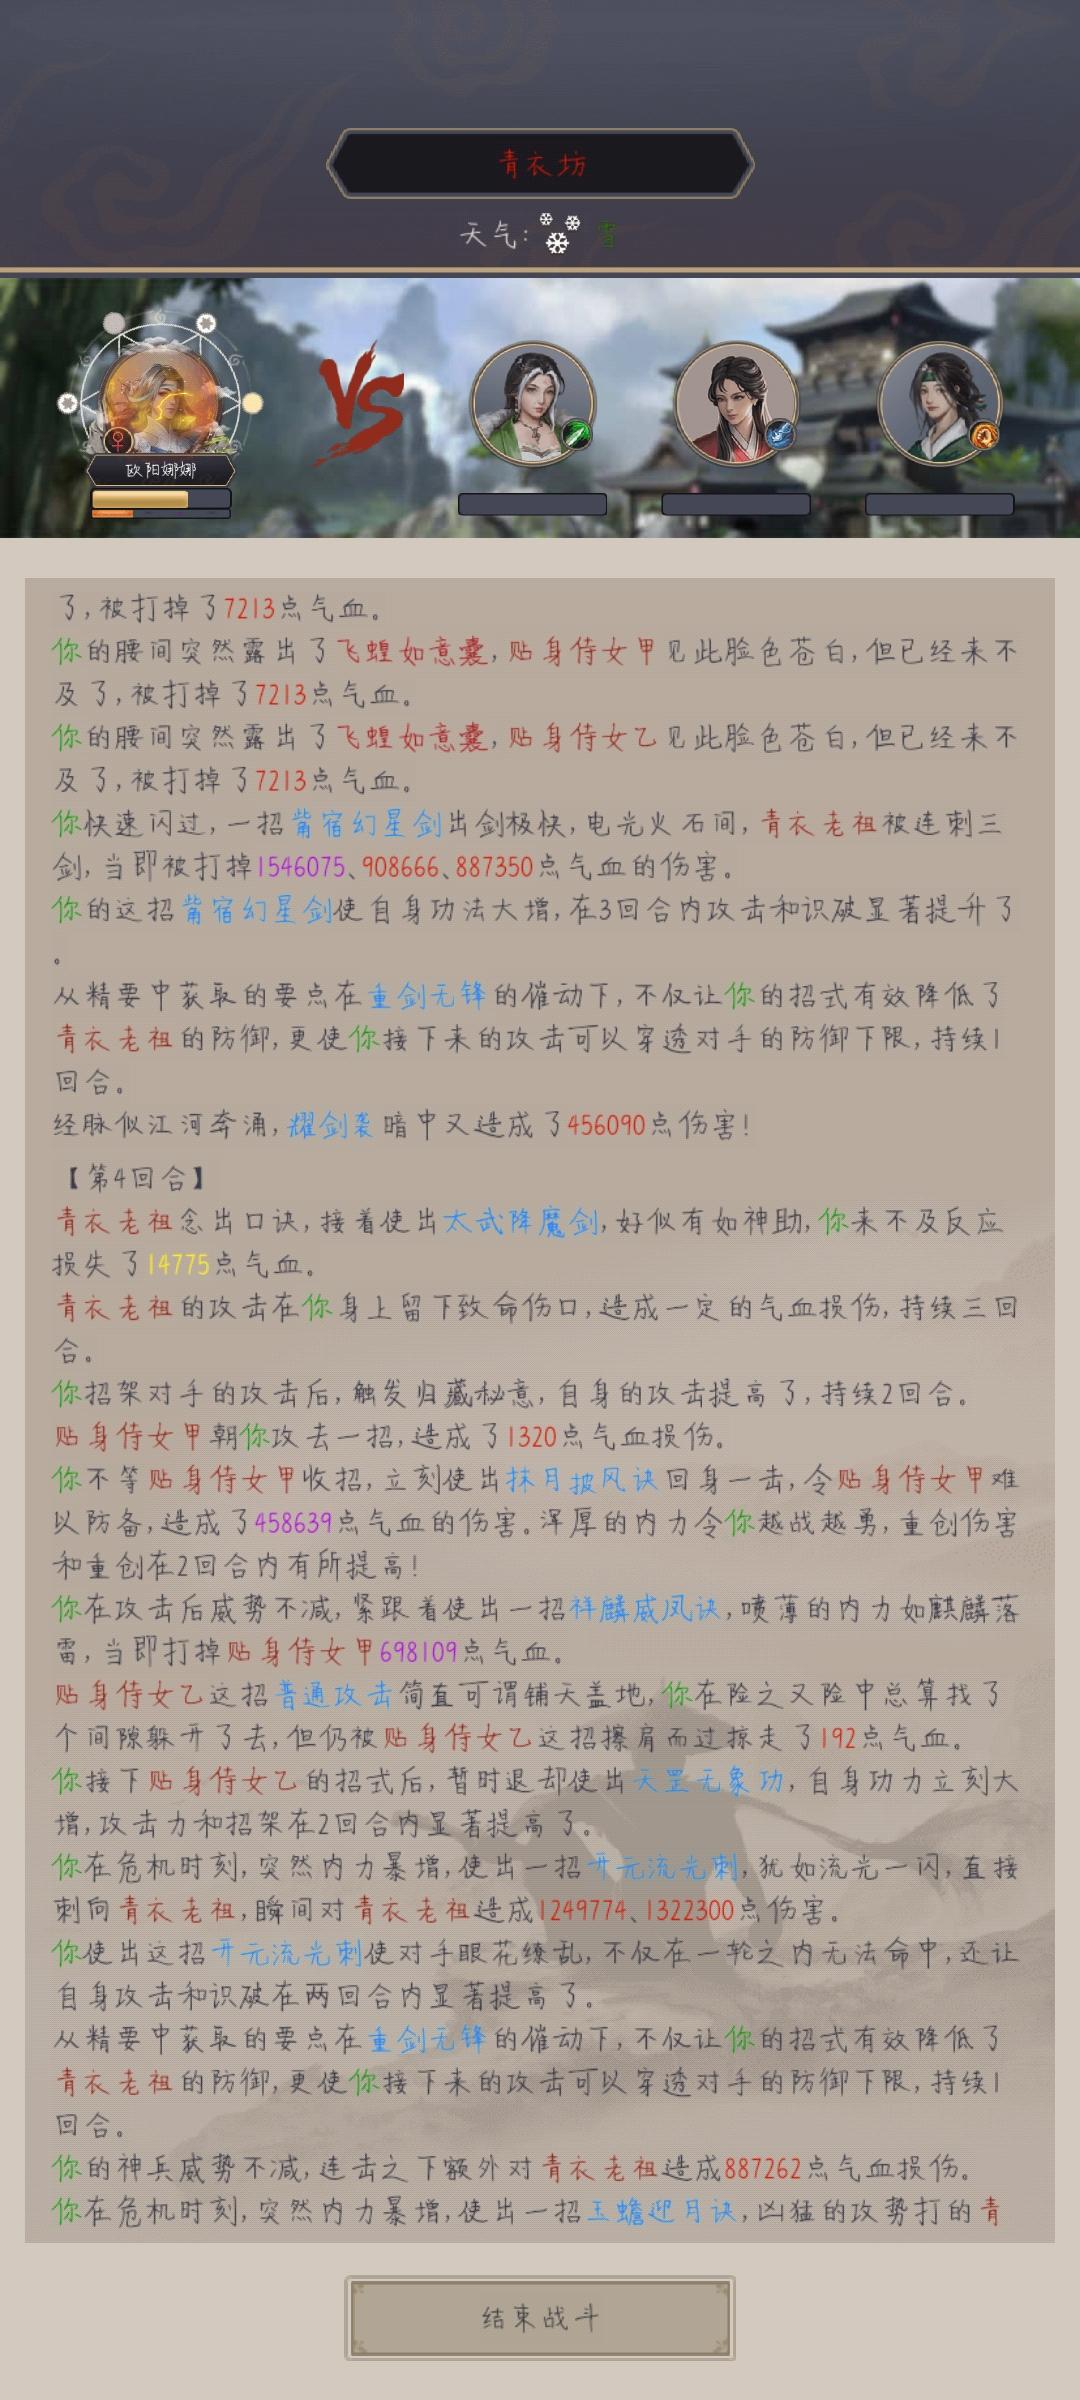 青衣坊
天气: 雪
VS
欧阳娜娜
了,被打掉了7213点气血。
你的腰间突然露出了飞蝗如意囊,贴身侍女甲见此脸色苍白,但已经来不
及了,被打掉了7213点气血。
你的腰间突然露出了飞蝗如意囊,贴身侍女乙见此脸色苍白,但已经来不
及了,被打掉了7213点气血。
你快速闪过,一招觜宿幻星剑出剑极快,电光火石间,青衣老祖被连刺三
剑,当即被打掉1546075、908666、887350点气血的伤害。
你的这招觜宿幻星剑使自身功法大增,在3回合内攻击和识破显著提升了
。
从精要中获取的要点在重剑无锋的催动下,不仅让你的招式有效降低了
青衣老祖的防御,更使你接下来的攻击可以穿透对手的防御下限,持续1
回合。
经脉似江河奔涌,耀剑袭暗中又造成了456090点伤害!
【第4回合】
青衣老祖念出口诀,接着使出太武降魔剑,好似有如神助,你来不及反应
损失了14775点气血。
青衣老祖的攻击在你身上留下致命伤口,造成一定的气血损伤,持续三回
合。
你招架对手的攻击后,触发归藏秘意,自身的攻击提高了,持续2回合。
贴身侍女甲朝你攻去一招,造成了1320点气血损伤。
你不等贴身侍女甲收招,立刻使出抹月披风诀回身一击,令贴身侍女甲难
以防备,造成了458639点气血的伤害。浑厚的内力令你越战越勇,重创伤害
和重创在2回合内有所提高!
你在攻击后威势不减,紧跟着使出一招祥麟威凤诀,喷薄的内力如麒麟落
雷,当即打掉贴身侍女甲698109点气血。
贴身侍女乙这招普通攻击简直可谓铺天盖地,你在险之又险中总算找了
个间隙躲开了去,但仍被贴身侍女乙这招擦肩而过掠走了192点气血。
你接下贴身侍女乙的招式后,暂时退却使出天罡无象功,自身功力立刻大
增,攻击力和招架在2回合内显著提高了。
你在危机时刻,突然内力暴增,使出一招开元流光刺,犹如流光一闪,直接
刺向青衣老祖,瞬间对青衣老祖造成1249774、1322300点伤害。
你使出这招开元流光刺使对手眼花缭乱,不仅在一轮之内无法命中,还让
自身攻击和识破在两回合内显著提高了。
从精要中获取的要点在重剑无锋的催动下,不仅让你的招式有效降低了
青衣老祖的防御,更使你接下来的攻击可以穿透对手的防御下限,持续1
回合。
你的神兵威势不减,连击之下额外对青衣老祖造成887262点气血损伤。
你在危机时刻,突然内力暴增,使出一招玉蟾迎月诀,凶猛的攻势打的青
结束战斗